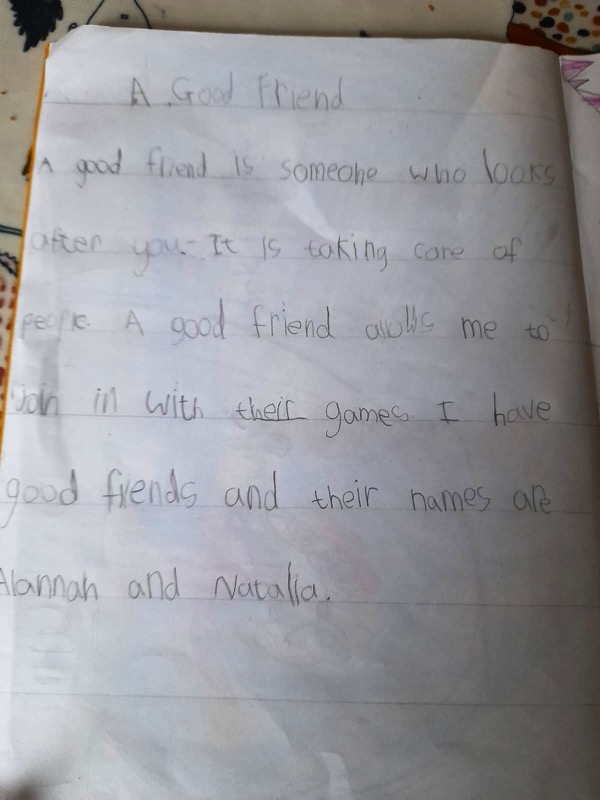 A Good Friend
A good friend is someone who looks
after you. It is taking care of
people. A good friend alows me to
join in with their games. I have
good friends and their names are
Alannah and Natalia.